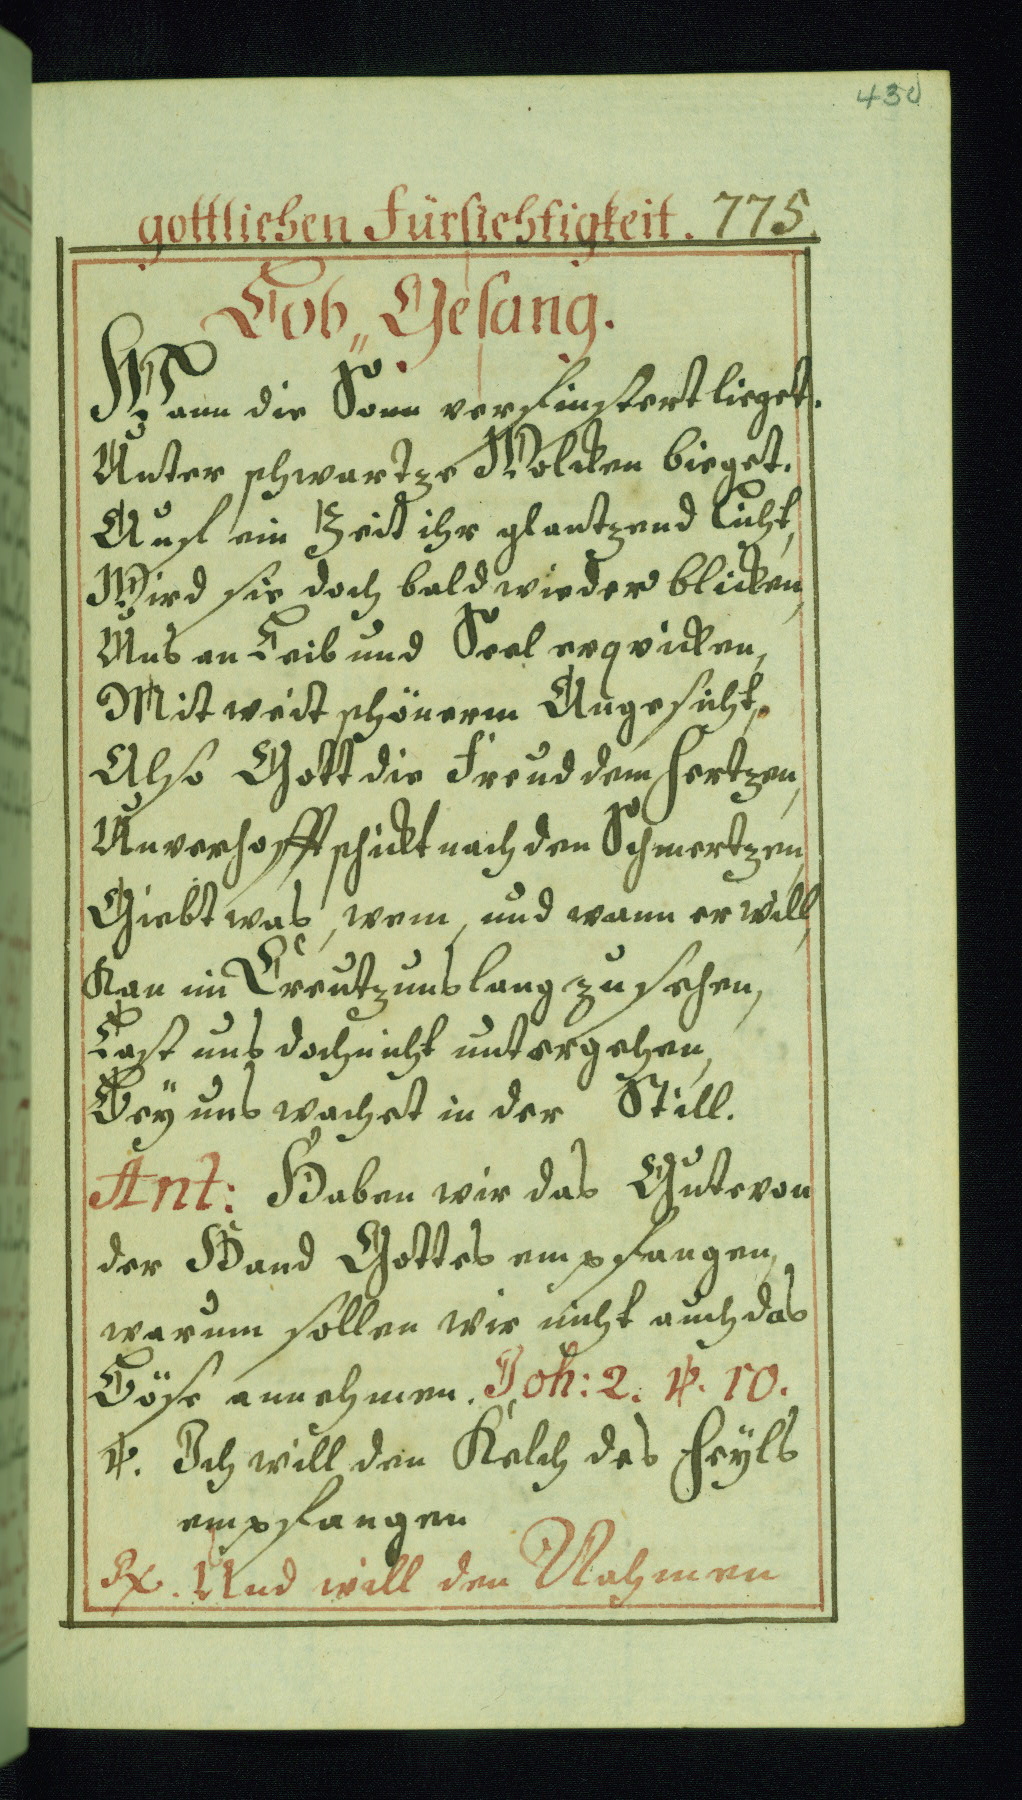 430
gottlichen Fürsichtigkeit. 775.
Lob„ Gesang.
Wann die Sonn verfinstert lieget.
Unter schwartze Wolcken bieget.
Auf ein Zeit ihr glantzend Licht,
Wird sie doch bald wieder blicken,
Uns an Leib und Seel erqvicken,
Mit weit schönerm Angesicht,
Also Gott die Freud dem Hertzen,
Unverhofft schickt nach den Schmertzen,
Giebt was, wem, und wann er will,
Kan im Creutz uns lang zusehen,
Last uns doch nicht untergehen,
Bey uns wachet in der Still.
Ant: Haben wir das Gute von
der Hand Gottes empfangen,
warum sollen wir nicht auch das
Böse annehmen. Joh: 2. ℣. 10.
℣. Ich will den Kelch des Heyls
empfangen
℟. Und will den Nahmen